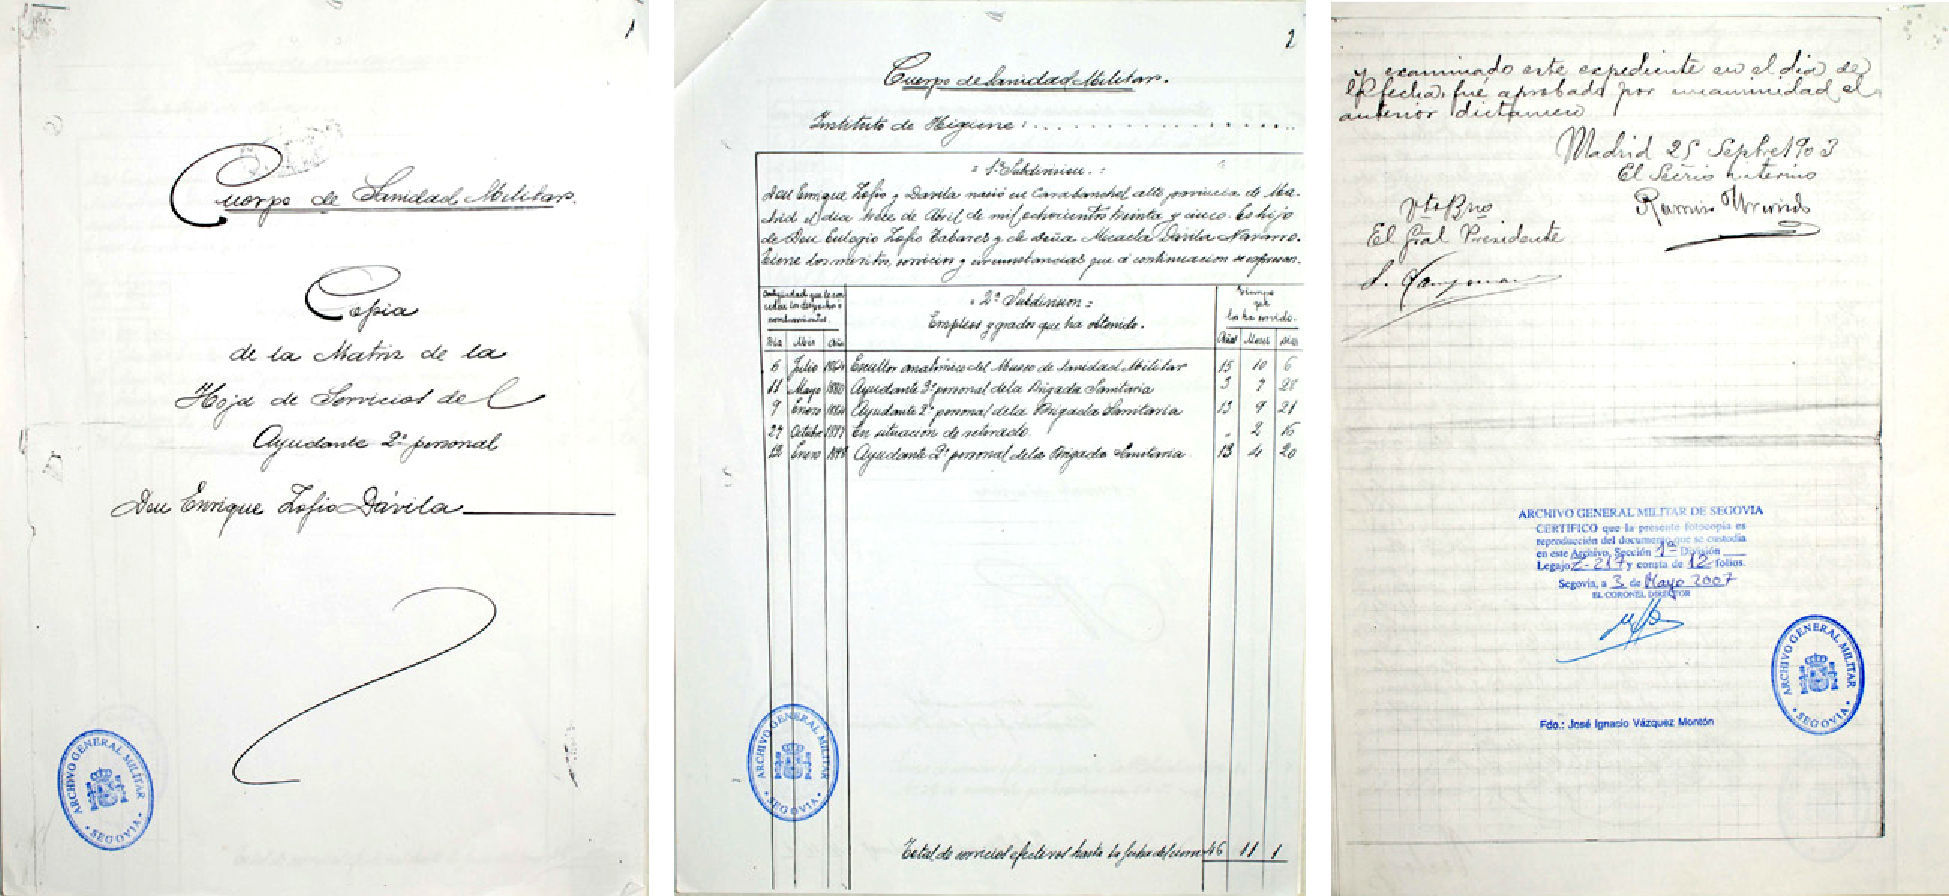 1
Cuerpo de Sanidad Militar.
Copia
de la Matriz de la
Hoja de Servicios del
Ayudante 2º personal
Don Enrique Zofio Dávila
ARCHIVO GENERAL MILITAR
SEGOVIA
2
Cuerpo de Sanidad Militar.
Instituto de Higiene:
1ª Subdivision.:
Don Enrique Zofio y Davila nació en Carabanchel alto provincia de Ma-
drid el dia trece de Abril de mil ochocientos treinta y cinco. Es hijo
de Don Eulogio Zofio Tabares y de doña Micaela Dávila Navarro.
tiene los meritos, servicios y circunstancias que á continuacion se expresan.
Antigüedad que le con-
ceden los despachos o
nombramientos.
Dia Mes Año
2ª Subdivision:
Empleos y grados que ha obtenido.
Tiempo
que
los ha servido.
Años Meses Dias
6 Julio 1864 Escultor anatómico del Museo de Sanidad Militar 15 10 6
11 Mayo 1880 Ayudante 3º personal de la Brigada Sanitaria 3 7 28
9 Enero 1884 Ayudante 2º personal de la Brigada Sanitaria 13 9 21
27 Octubre 1897 En situación de retirado. " 2 15
12 Enero 1898 Ayudante 2º personal de la Brigada Sanitaria 13 4 20
Total de servicios efectivos hasta la fecha del cierre 46 11 1
ARCHIVO GENERAL MILITAR
SEGOVIA
y examinado este expediente en el dia de
la fecha, fué aprobado por unanimidad el
anterior dictamen
Madrid 25 Septbre 1903
El Scrio interino
Ramiro
Vto Bno
El Gral Presidente
ARCHIVO GENERAL MILITAR DE SEGOVIA
CERTIFICO que la presente fotocopia es
reproducción del documento que se custodia
en este Archivo, Sección 1ª División
Legajo Z-217 y consta de 12 folios.
Segovia, a 3 de Mayo 2007
EL CORONEL DIRECTOR
ARCHIVO GENERAL MILITAR
SEGOVIA
Fdo.: José Ignacio Vázquez Montón